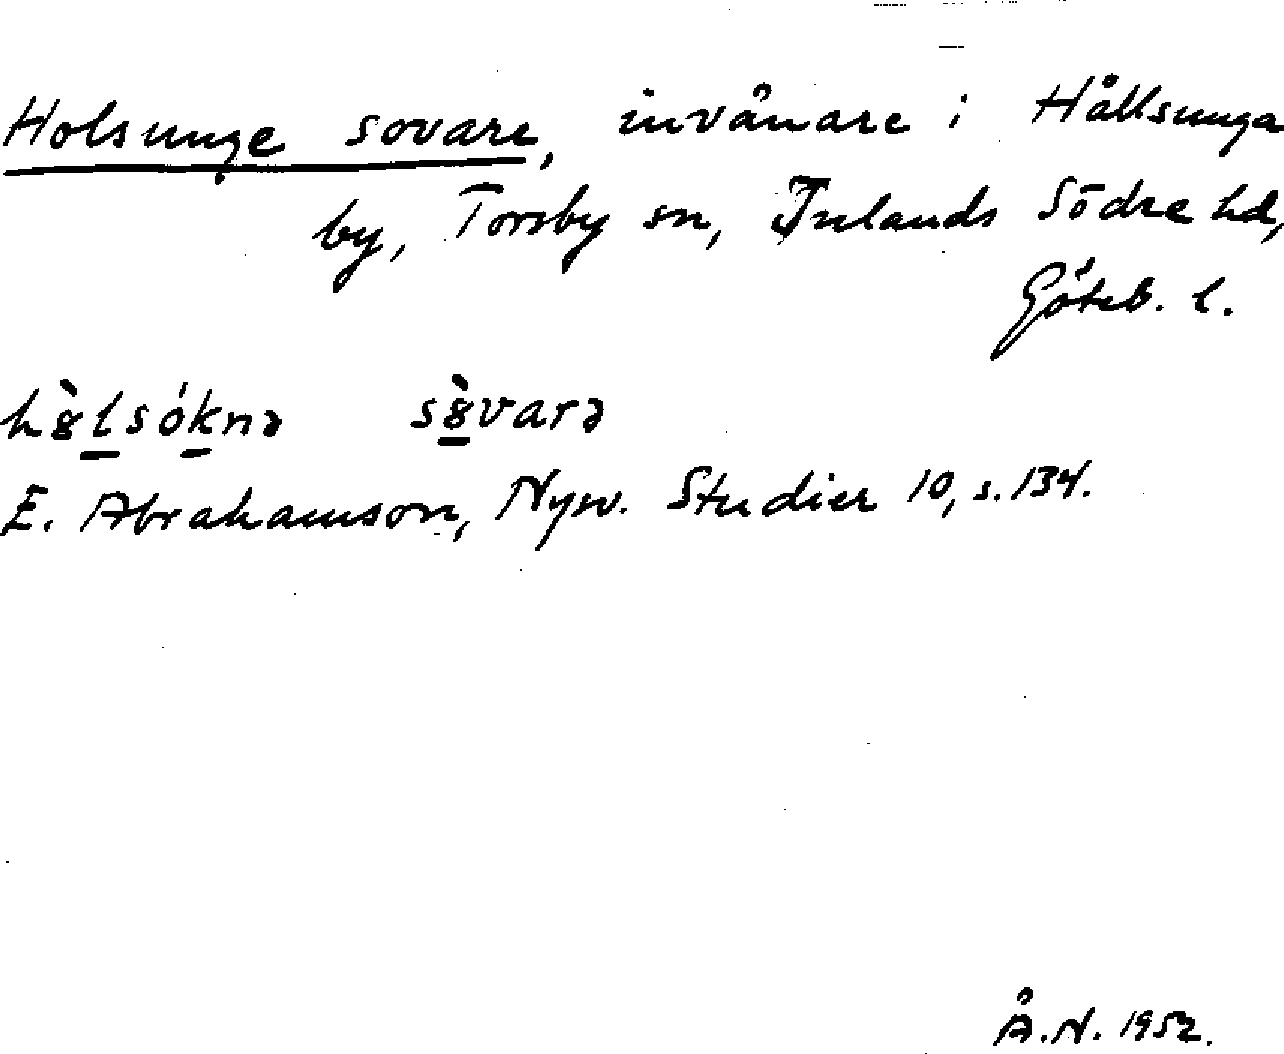 Holsunge sovare, invånare i Hållsunga
by, Torsby sn, Inlands Södre hd,
Göteb. l.
hȣ̀lsóknə sȣ̀varə
E. Abrahamson, Nysv. Studier 10, s. 134.
Å.N. 1952.